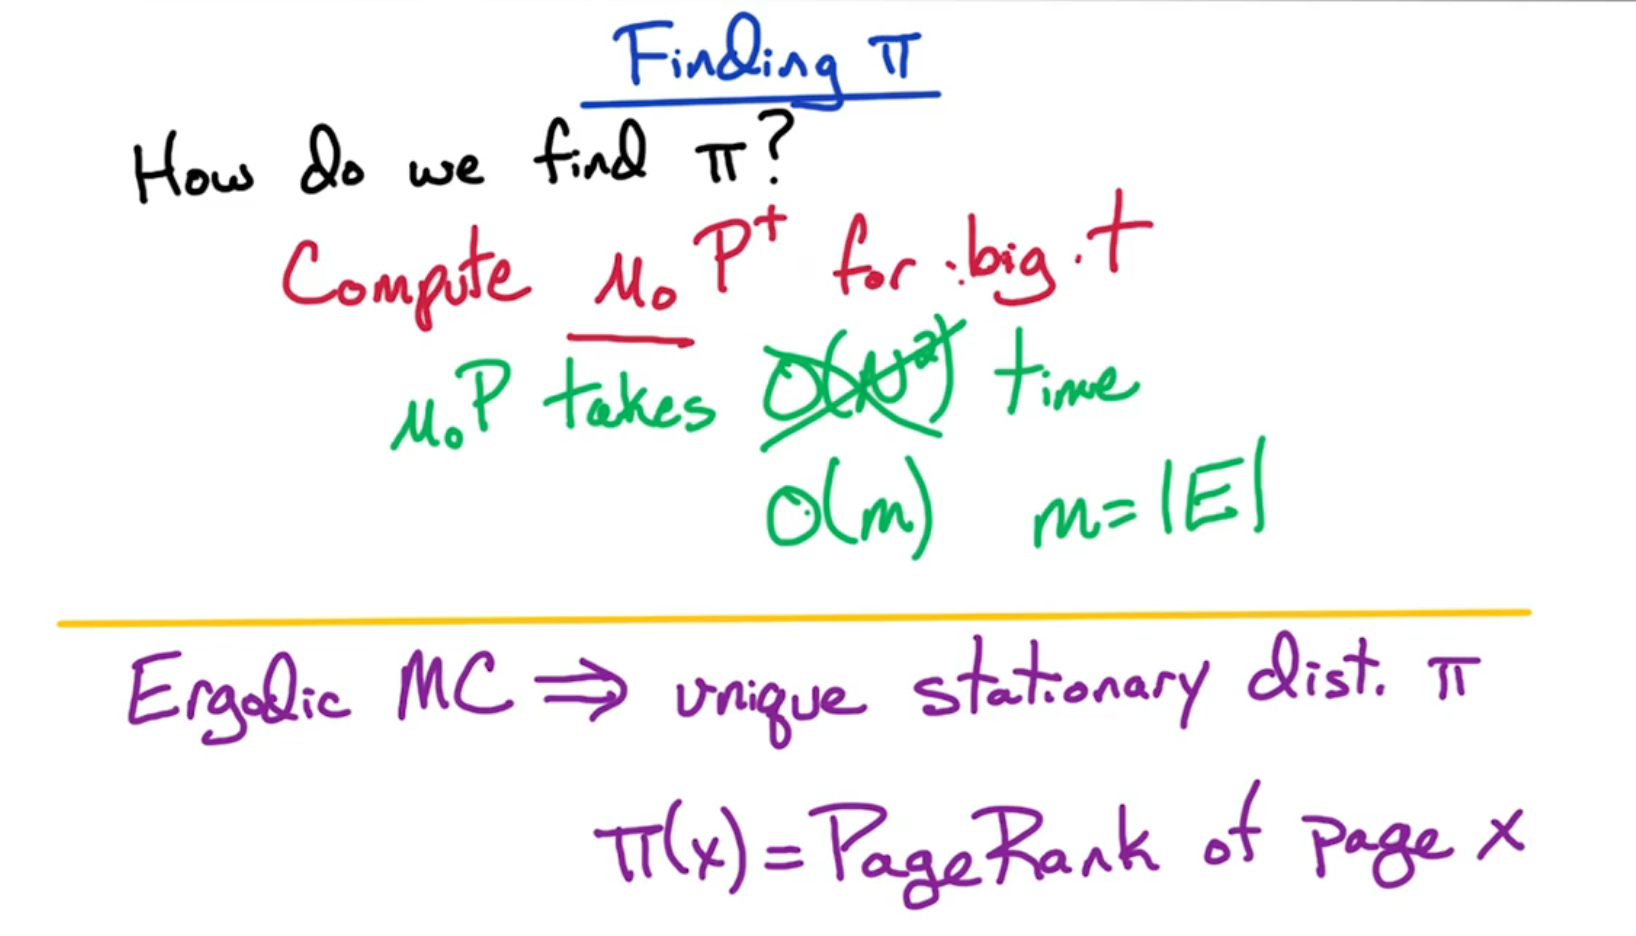 Finding π
How do we find π?
Compute μ₀ Pᵗ for big t
μ₀P takes O(N²) time
O(m) m = |E|
Ergodic MC ⇒ unique stationary dist. π
π(x) = PageRank of page x